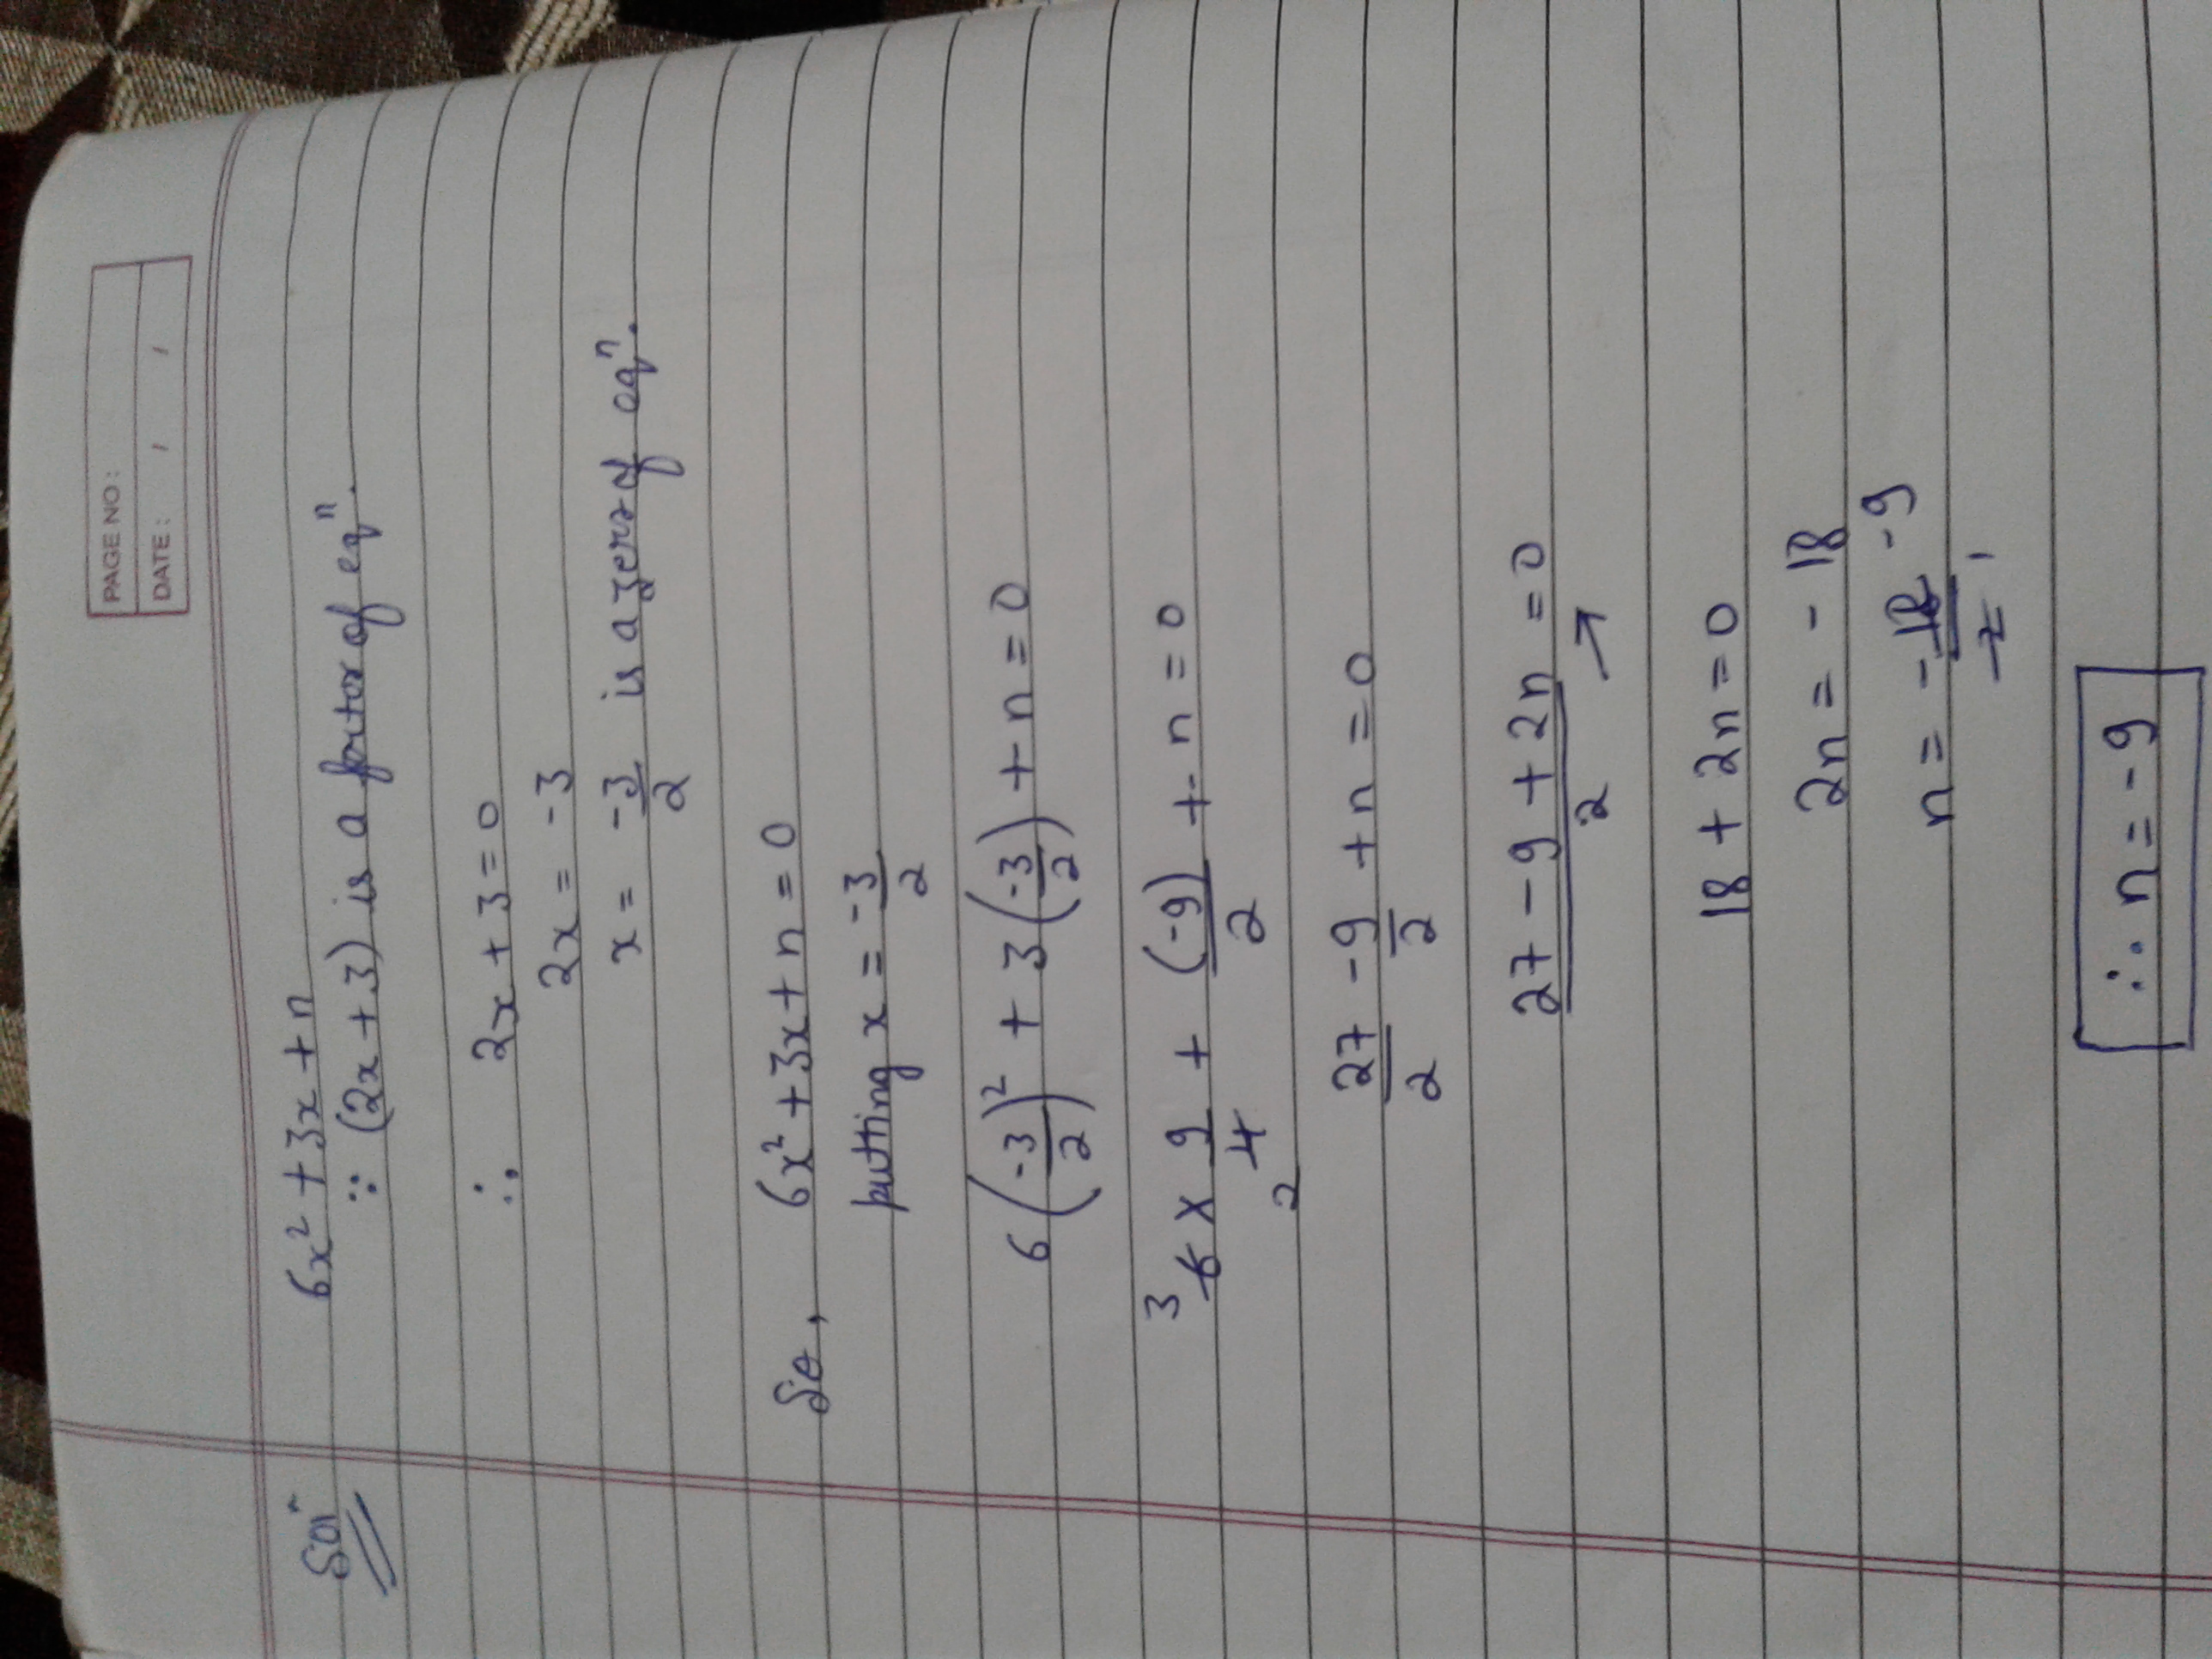 PAGE NO:
DATE: / /
Solⁿ 6x² + 3x + n
∵ (2x + 3) is a factor of eqⁿ.
∴ 2x + 3 = 0
2x = -3
x = -3/2 is a zero of eqⁿ.
So, 6x² + 3x + n = 0
putting x = -3/2
6(-3/2)² + 3(-3/2) + n = 0
3 6 × 9/4 2 + (-9)/2 + n = 0
27/2 - 9/2 + n = 0
27 - 9 + 2n/2 = 0 ↗
18 + 2n = 0
2n = -18
n = -18/2 -9 1
∴ n = -9